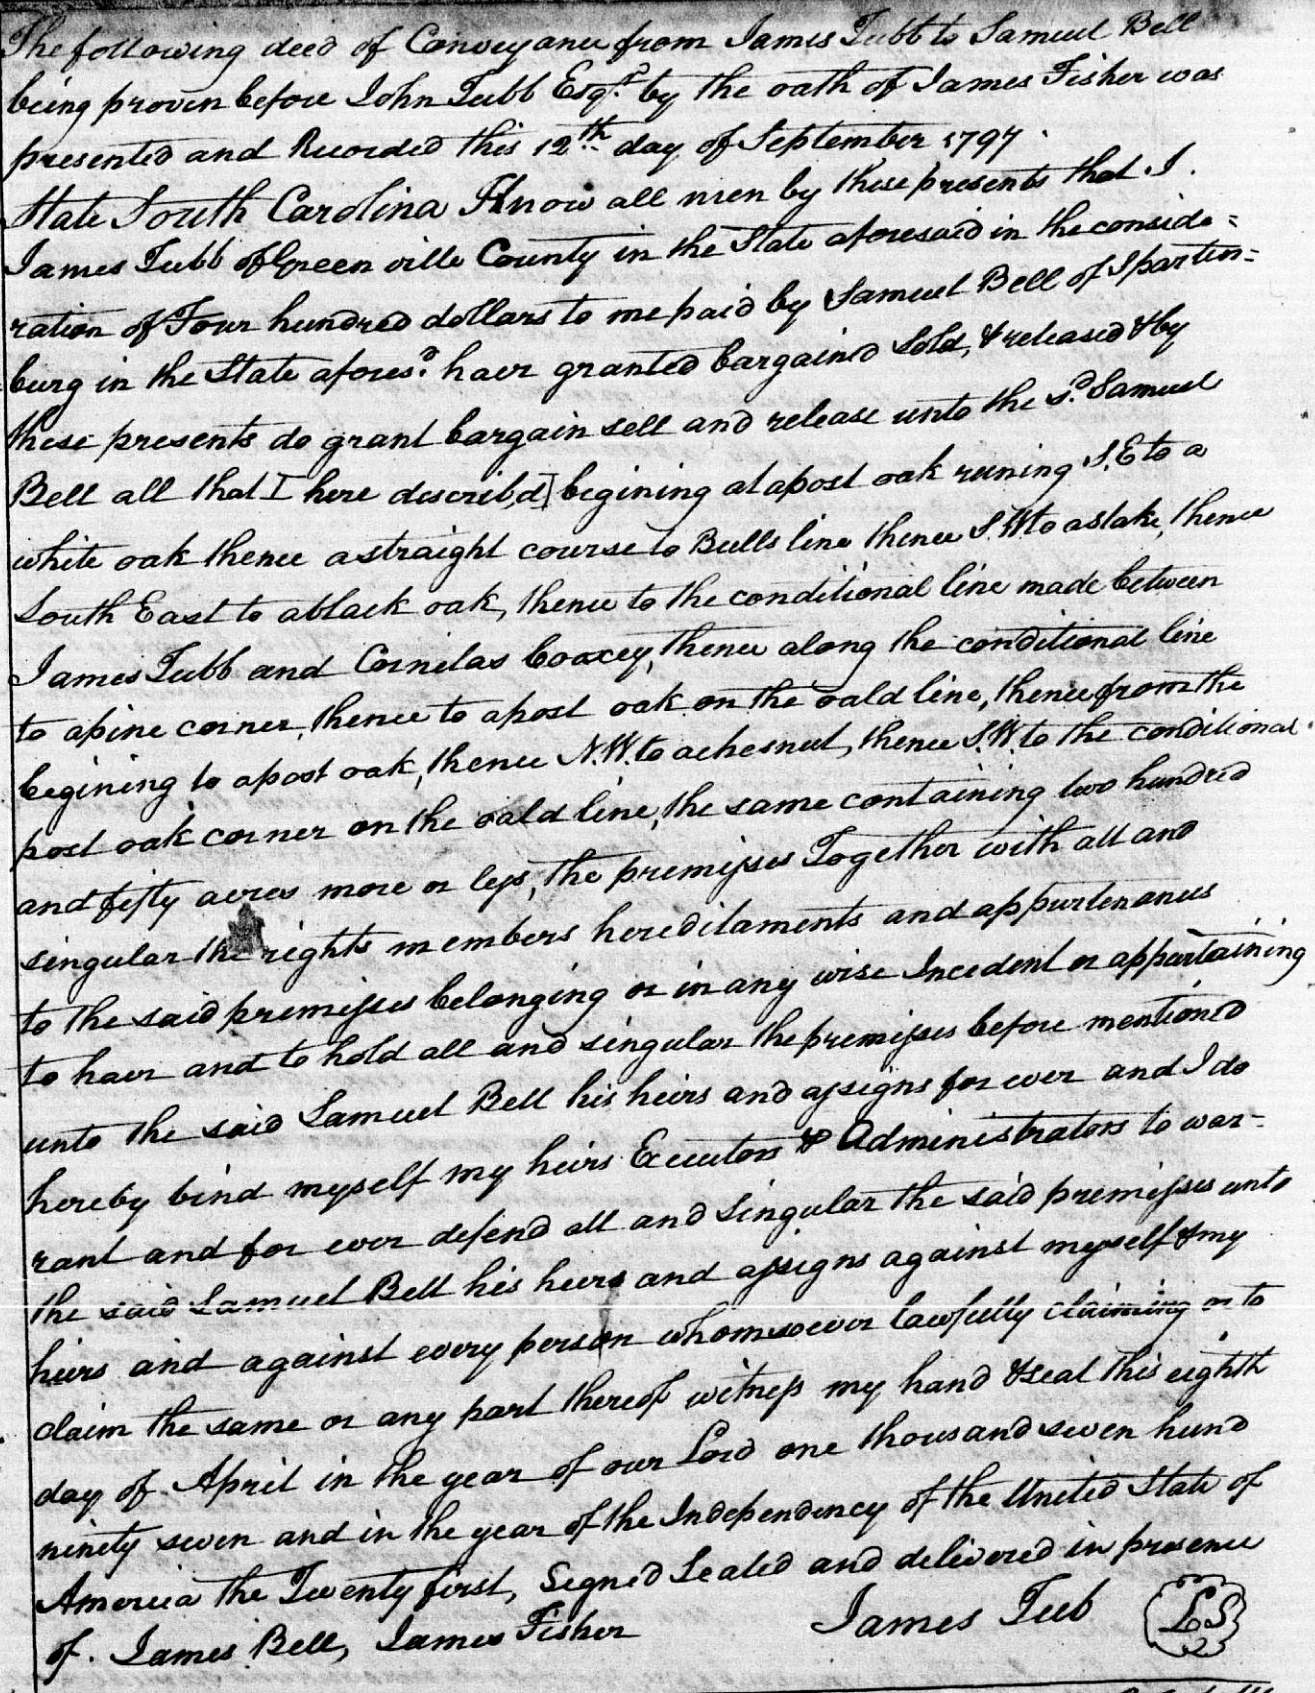 The following deed of Conveyance from James Tubb to Samuel Bell
being proven before John Tubb Esqr. by the oath of James Fisher was
presented and Recorded this 12th day of September 1797.
State South Carolina Know all men by these presents that I.
James Tubb of Greenville County in the State aforesaid in the conside=
ration of Four hundred dollars to me paid by Samuel Bell of Spartin=
burg in the State afores.d have granted bargained Sold, & released & by
these presents do grant bargain sell and release unto the s.d Samuel
Bell all that I here describ,d begining at a post oak runing S.E to a
white oak thence a straight course to Bulls line thence S.W to a stake, thence
South East to a black oak, thence to the conditional line made between
James Tubb and Cornilas Coaxey, thence along the conditional line
to a pine corner, thence to a post oak on the oald line, thence from the
begining to a post oak, thence N.W. to a chesnut, thence S.W. to the conditional.
post oak corner on the oald line, the same containing two hundred
and fifty acres more or less, the premisses Together with all and
singular the rights members hereditaments and appurtenances
to the said premisses belonging or in any wise Incedent or appartaining
to have and to hold all and singular the premisses before mentioned
unto the said Samuel Bell his heirs and assigns for ever and I do
hereby bind myself my heirs Executors & Administrators to war=
rant and for ever defend all and singular the said premisses unto
the said Samuel Bell his heirs and assigns against myself & my
heirs and against every person whomsoever lawfully claiming or to
claim the same or any part thereof witness my hand & seal this eighth
day of April in the year of our Lord one thousand seven hund
ninety seven and in the year of the Independency of the United State of
America the Twenty first, Signed Sealed and delivered in presence
of. James Bell, James Fisher James Tub LS